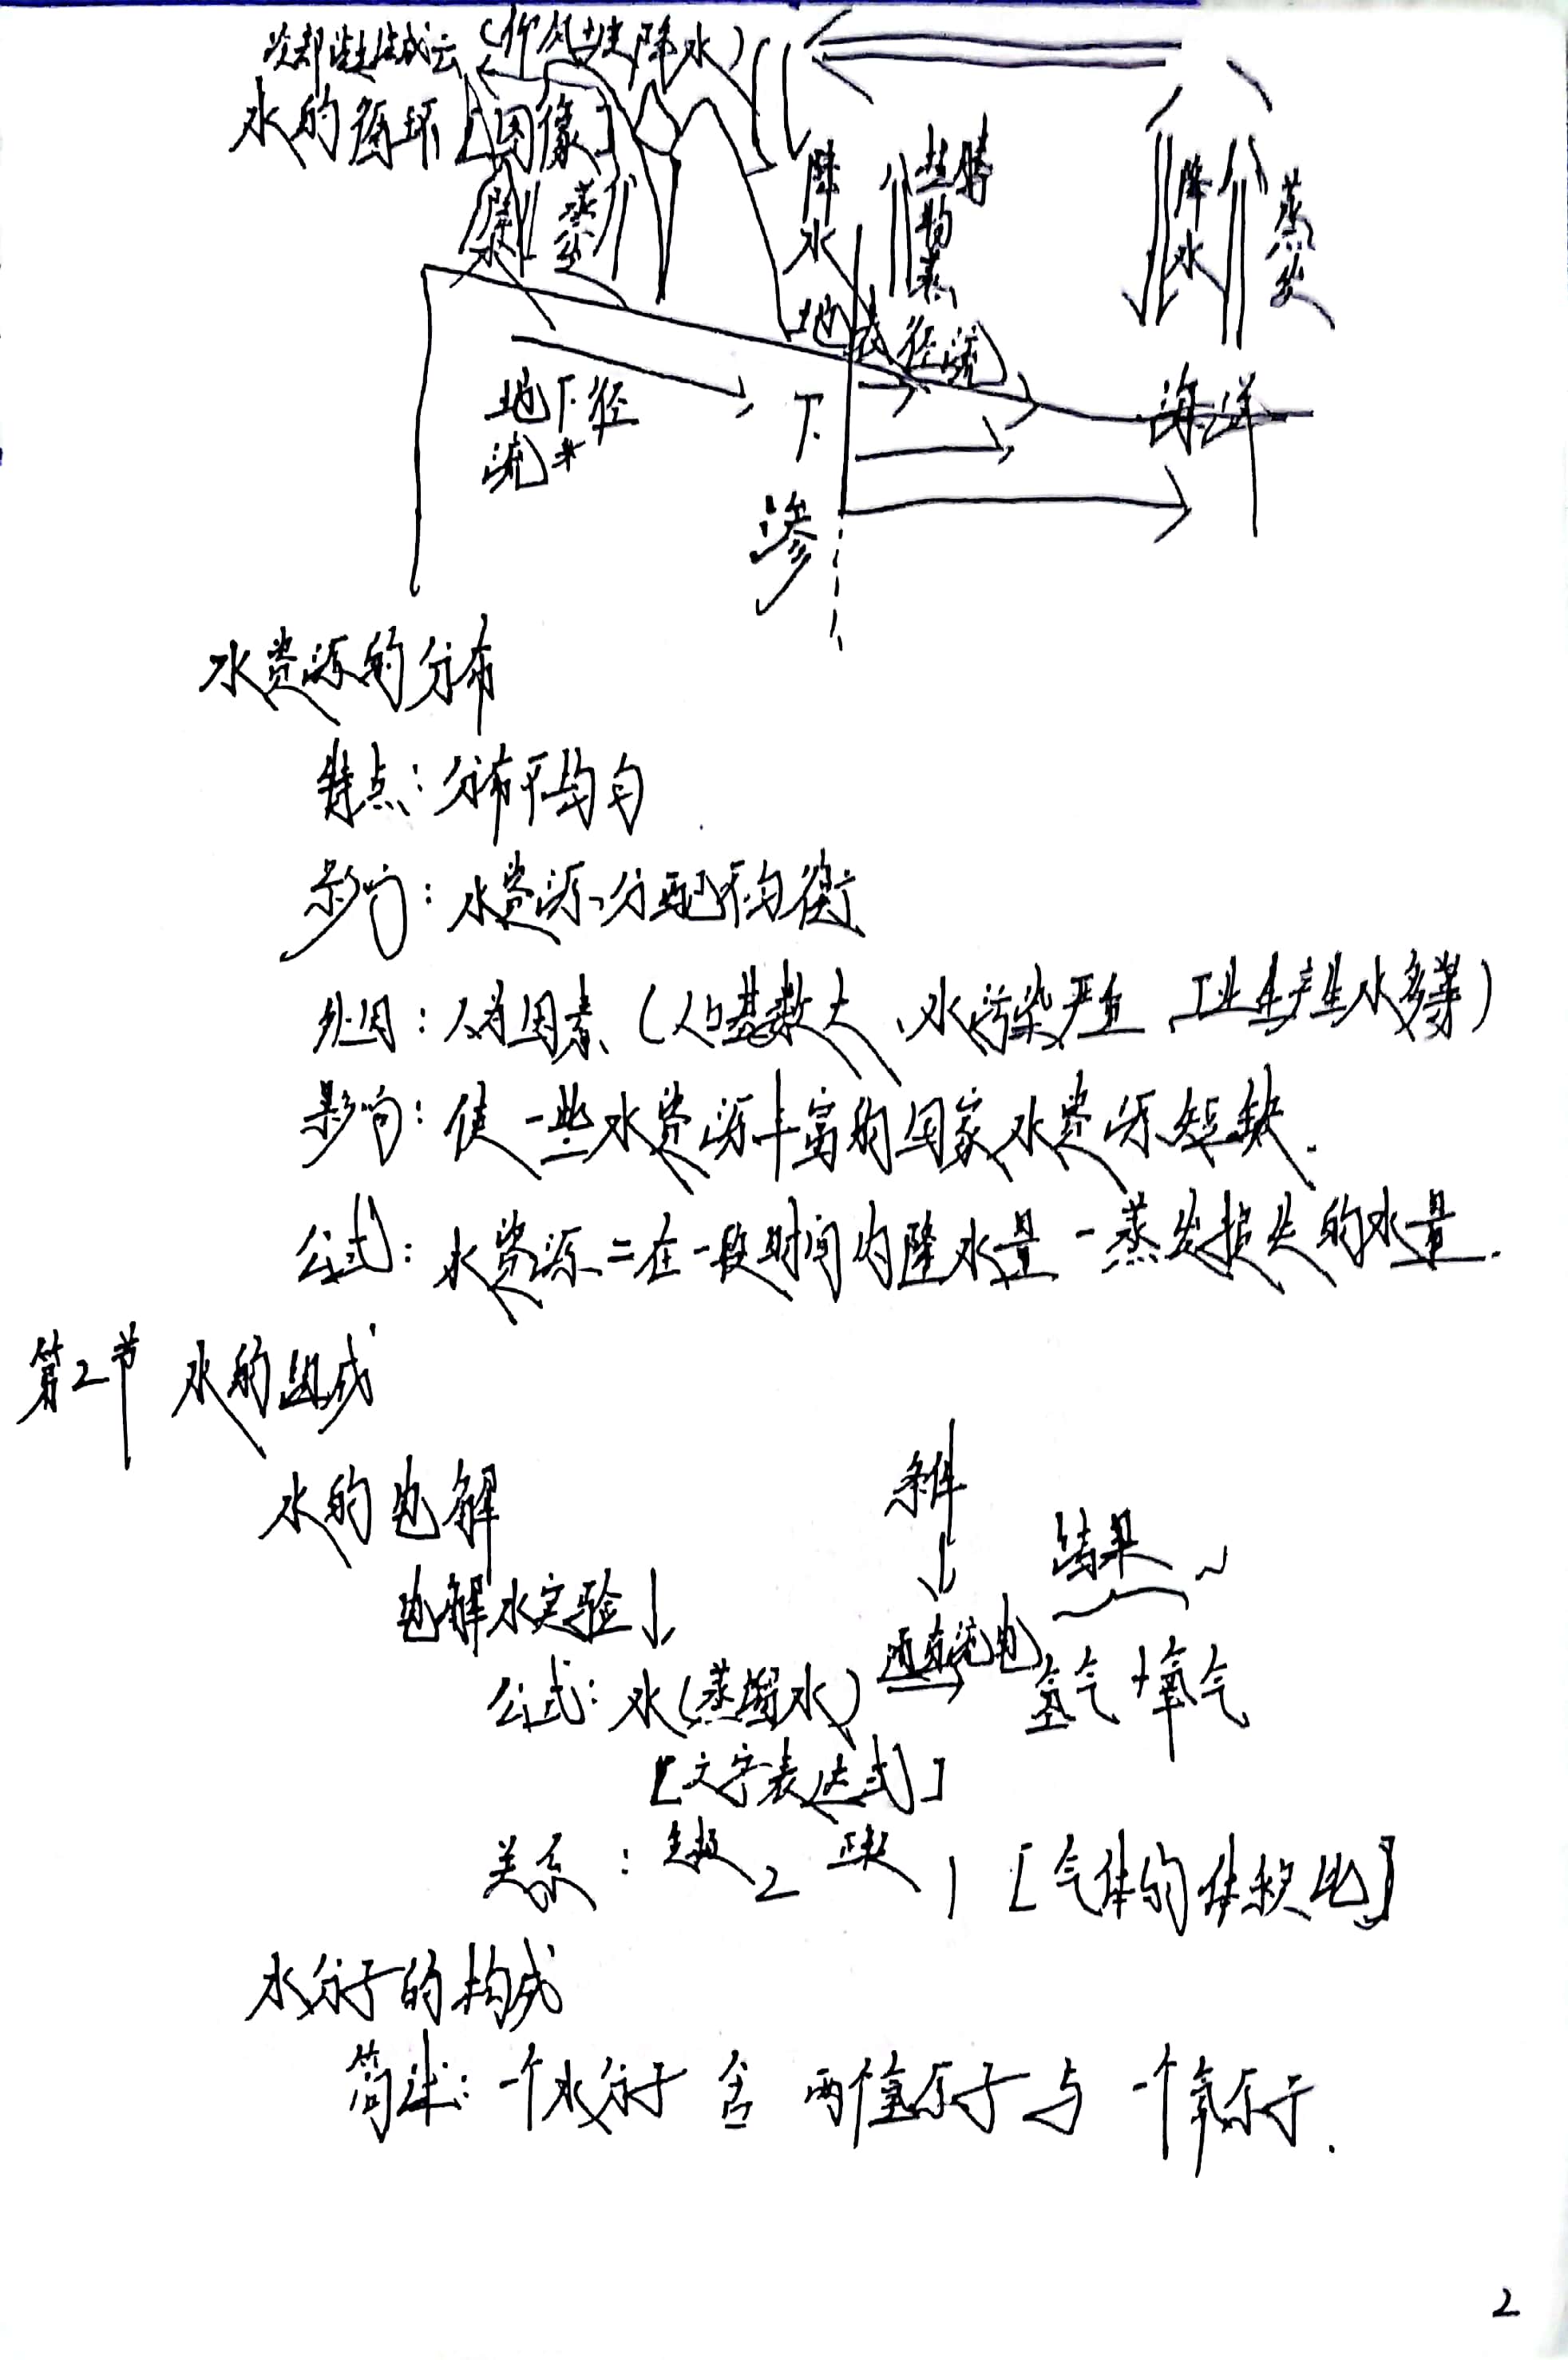 冷却凝结成云(迎风坡降水)
水的循环[图像]
降水
蒸发
降水
植物蒸
降水
蒸发
地表径流
地下径流
下渗
海洋
水资源的分布
特点:分布不均匀
影响:水资源分配不均衡
外因:人为因素(人口基数大、水污染严重、工业生产生水多等)
影响:使一些水资源丰富的国家水资源短缺.
公式:水资源=在一段时间内降水量-蒸发损失的水量.
第2节 水的组成
水的电解
条件
结果
电解水实验
公式:水(蒸馏水) 通直流电 氢气+氧气
[文字表达式]
关系:负极 2 正极 1 [气体的体积比]
水分子的构成
简述:一个水分子 含 两个氢原子与 一个氧原子.
2